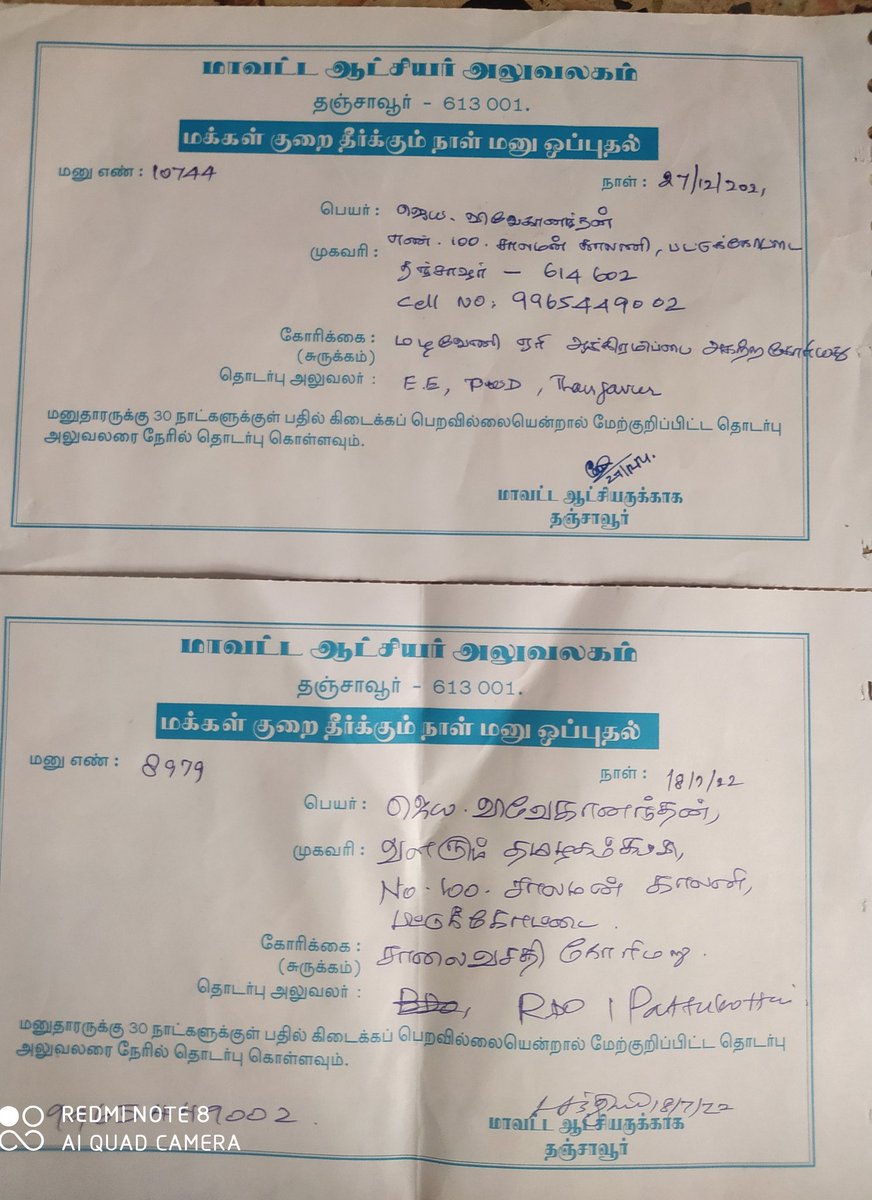 மாவட்ட ஆட்சியர் அலுவலகம்
தஞ்சாவூர் - 613 001.
மக்கள் குறை தீர்க்கும் நாள் மனு ஒப்புதல்
மனு எண் : 10744 நாள் : 27/12/2021
பெயர் : ஜெய. விவேகானந்தன்
முகவரி : எண். 100. சாலமன் காலணி, பட்டுக்கோட்டை
தஞ்சாவூர் - 614 602
Cell NO: 9965449002
கோரிக்கை : ஏரி ஆக்கிரமிப்பை
(சுருக்கம்)
தொடர்பு அலுவலர் : E.E, PWD, Thanjavur
மனுதாரருக்கு 30 நாட்களுக்குள் பதில் கிடைக்கப் பெறவில்லையென்றால் மேற்குறிப்பிட்ட தொடர்பு
அலுவலரை நேரில் தொடர்பு கொள்ளவும்.
மாவட்ட ஆட்சியருக்காக
தஞ்சாவூர்
மாவட்ட ஆட்சியர் அலுவலகம்
தஞ்சாவூர் - 613 001.
மக்கள் குறை தீர்க்கும் நாள் மனு ஒப்புதல்
மனு எண் : 8979 நாள் : 18/7/22
பெயர் : ஜெய. விவேகானந்தன்,
முகவரி : வளரும் தமிழகம் கட்சி,
No. 100. சாலமன் காலனி,
பட்டுக்கோட்டை.
கோரிக்கை : சாலைவசதி கோரிமனு.
(சுருக்கம்)
தொடர்பு அலுவலர் : RDO / Pattukottai
மனுதாரருக்கு 30 நாட்களுக்குள் பதில் கிடைக்கப் பெறவில்லையென்றால் மேற்குறிப்பிட்ட தொடர்பு
அலுவலரை நேரில் தொடர்பு கொள்ளவும்.
18/7/22
மாவட்ட ஆட்சியருக்காக
தஞ்சாவூர்
REDMI NOTE 8
AI QUAD CAMERA